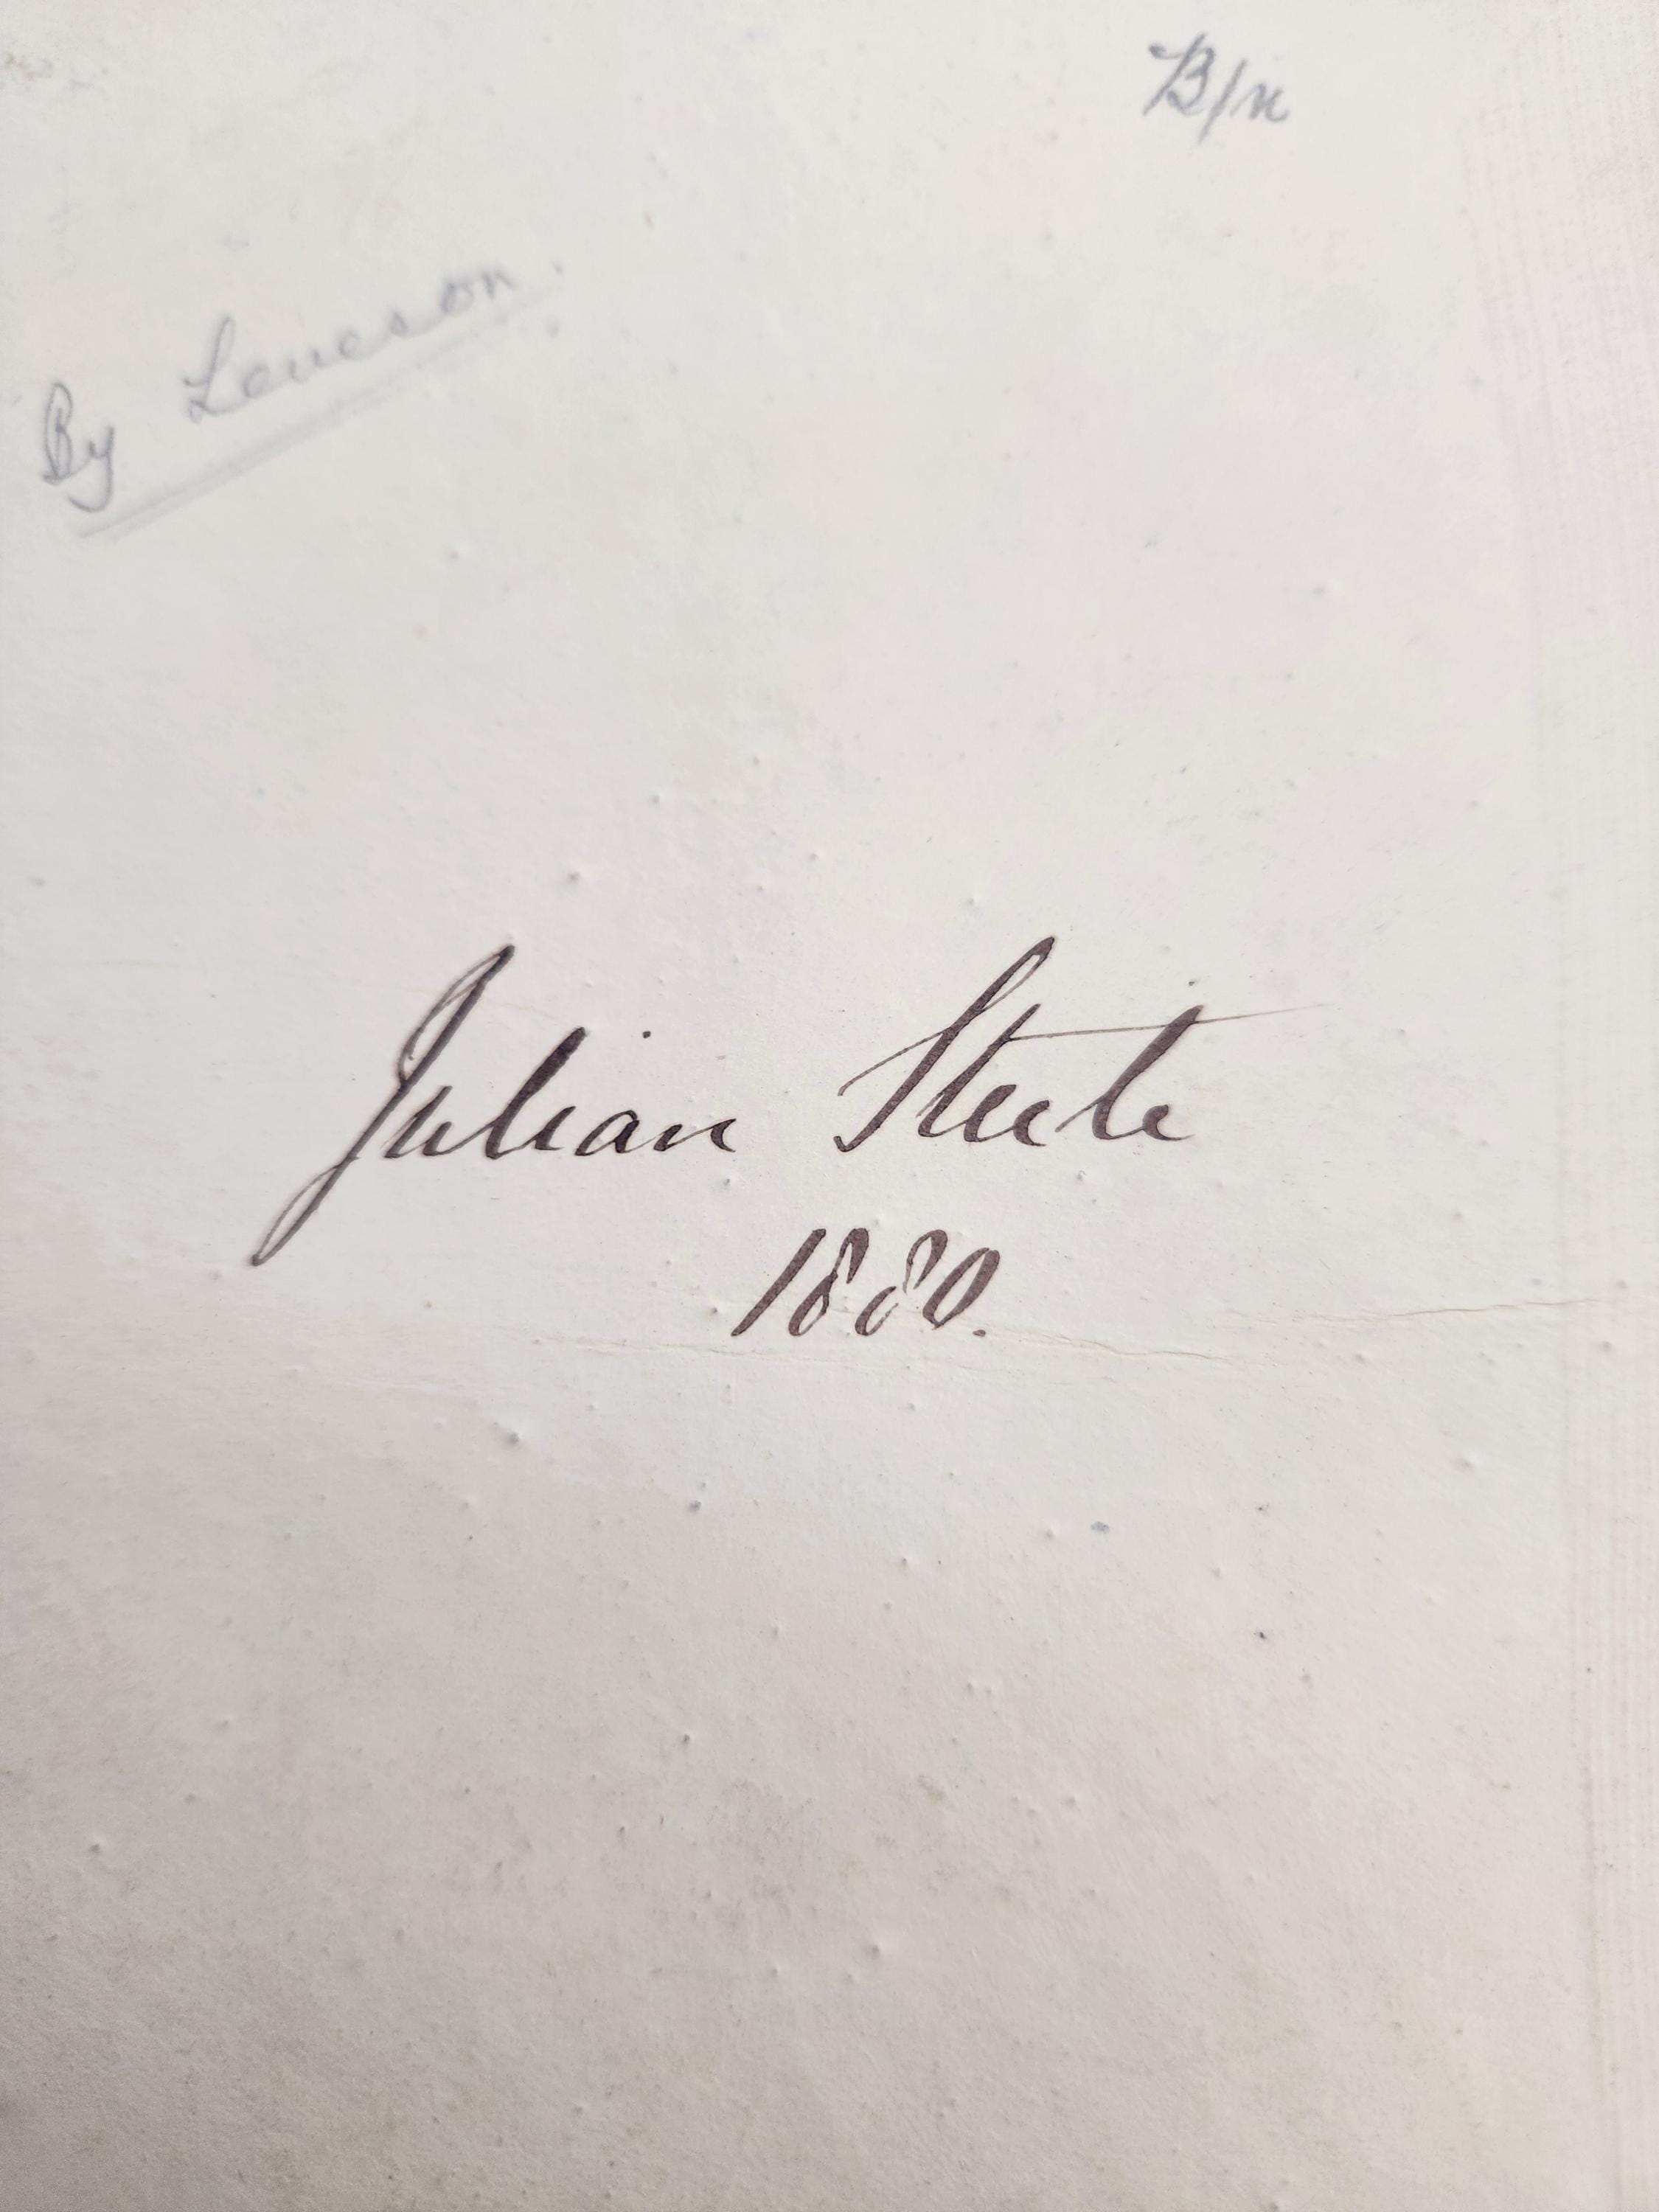 B/n
By Leveson.
Julian Steele
1880.